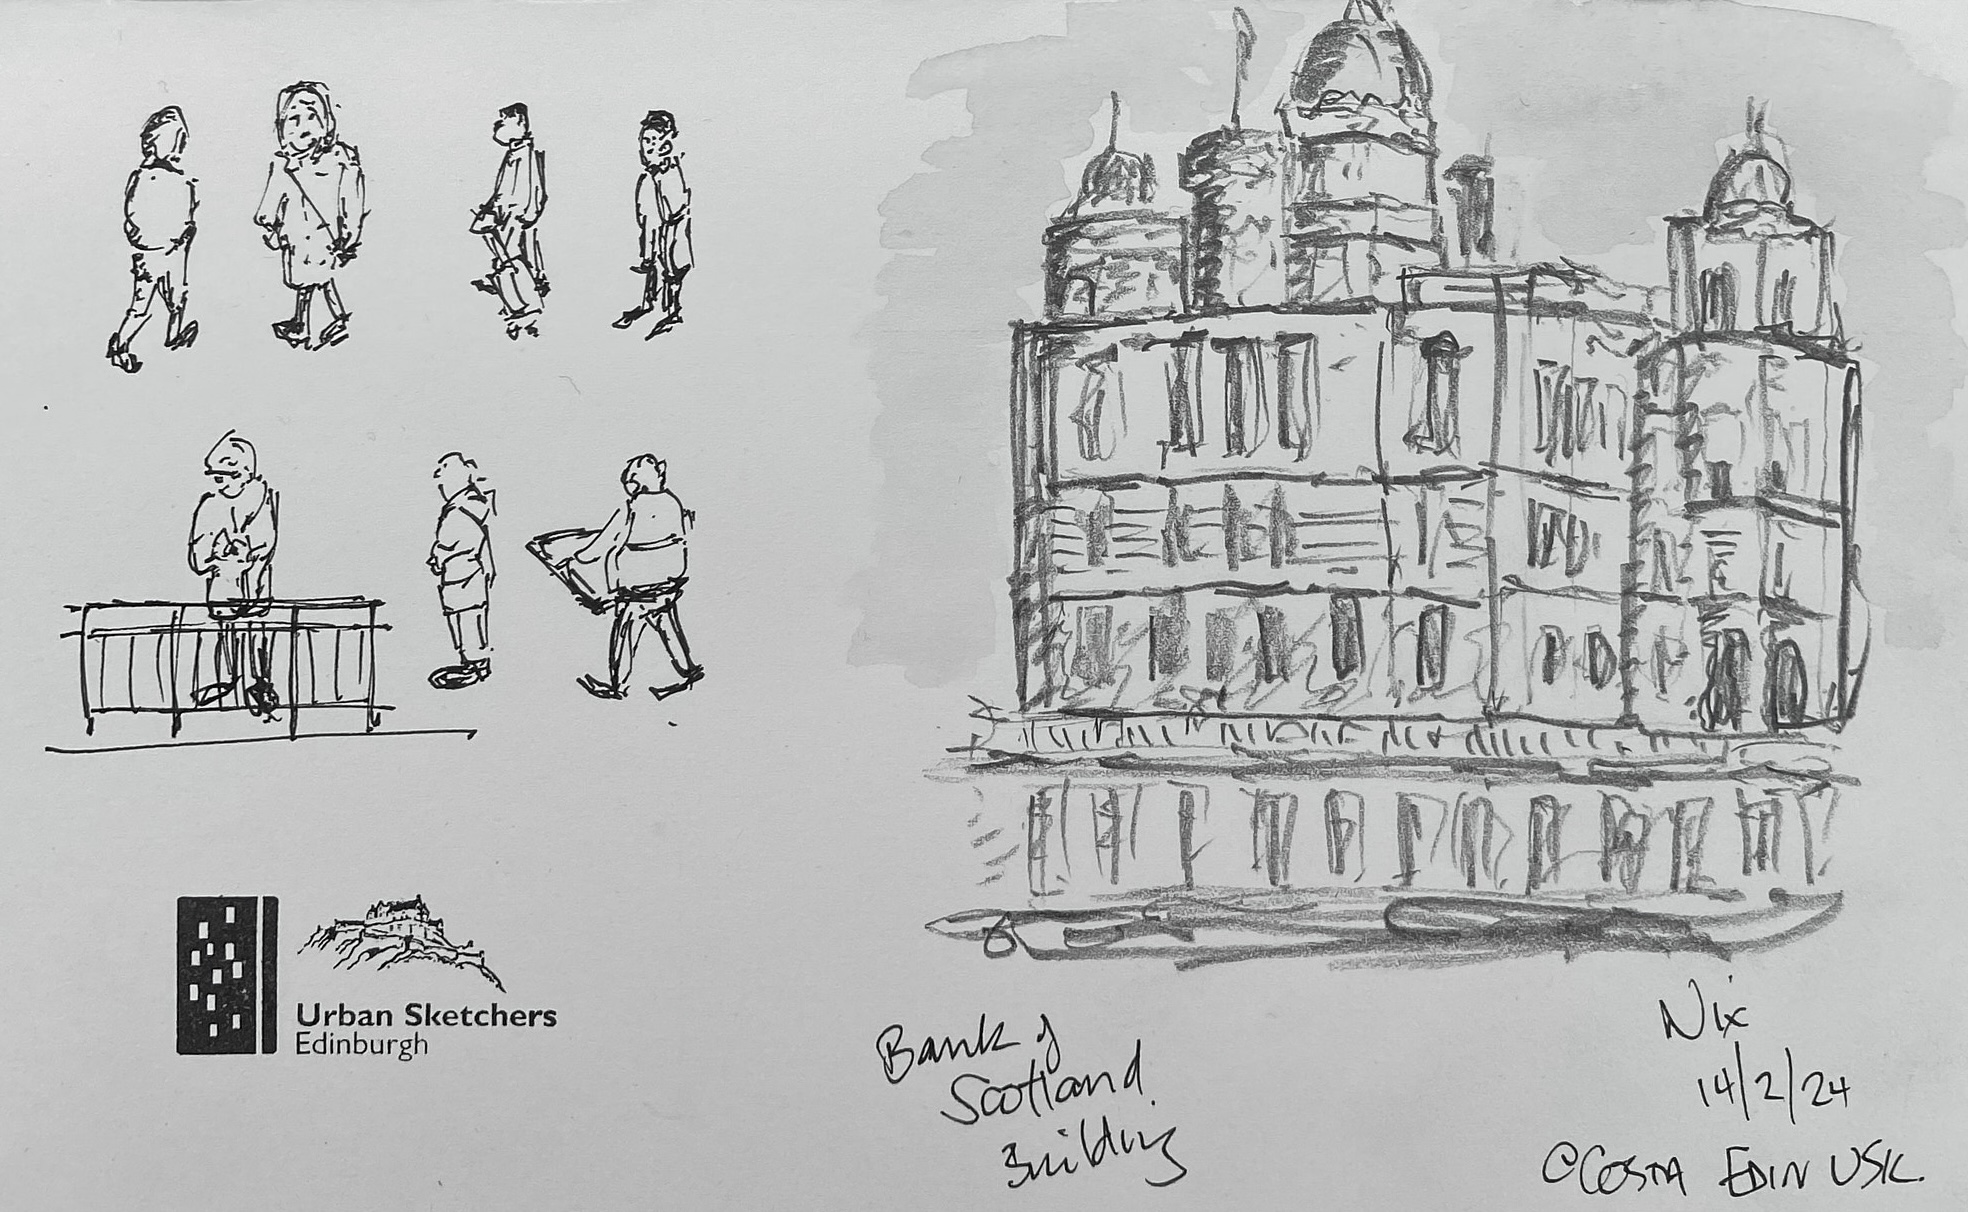 Urban Sketchers
Edinburgh
Bank of
Scotland
Building
Nix
14/2/24
@COSTA EDIN USK.